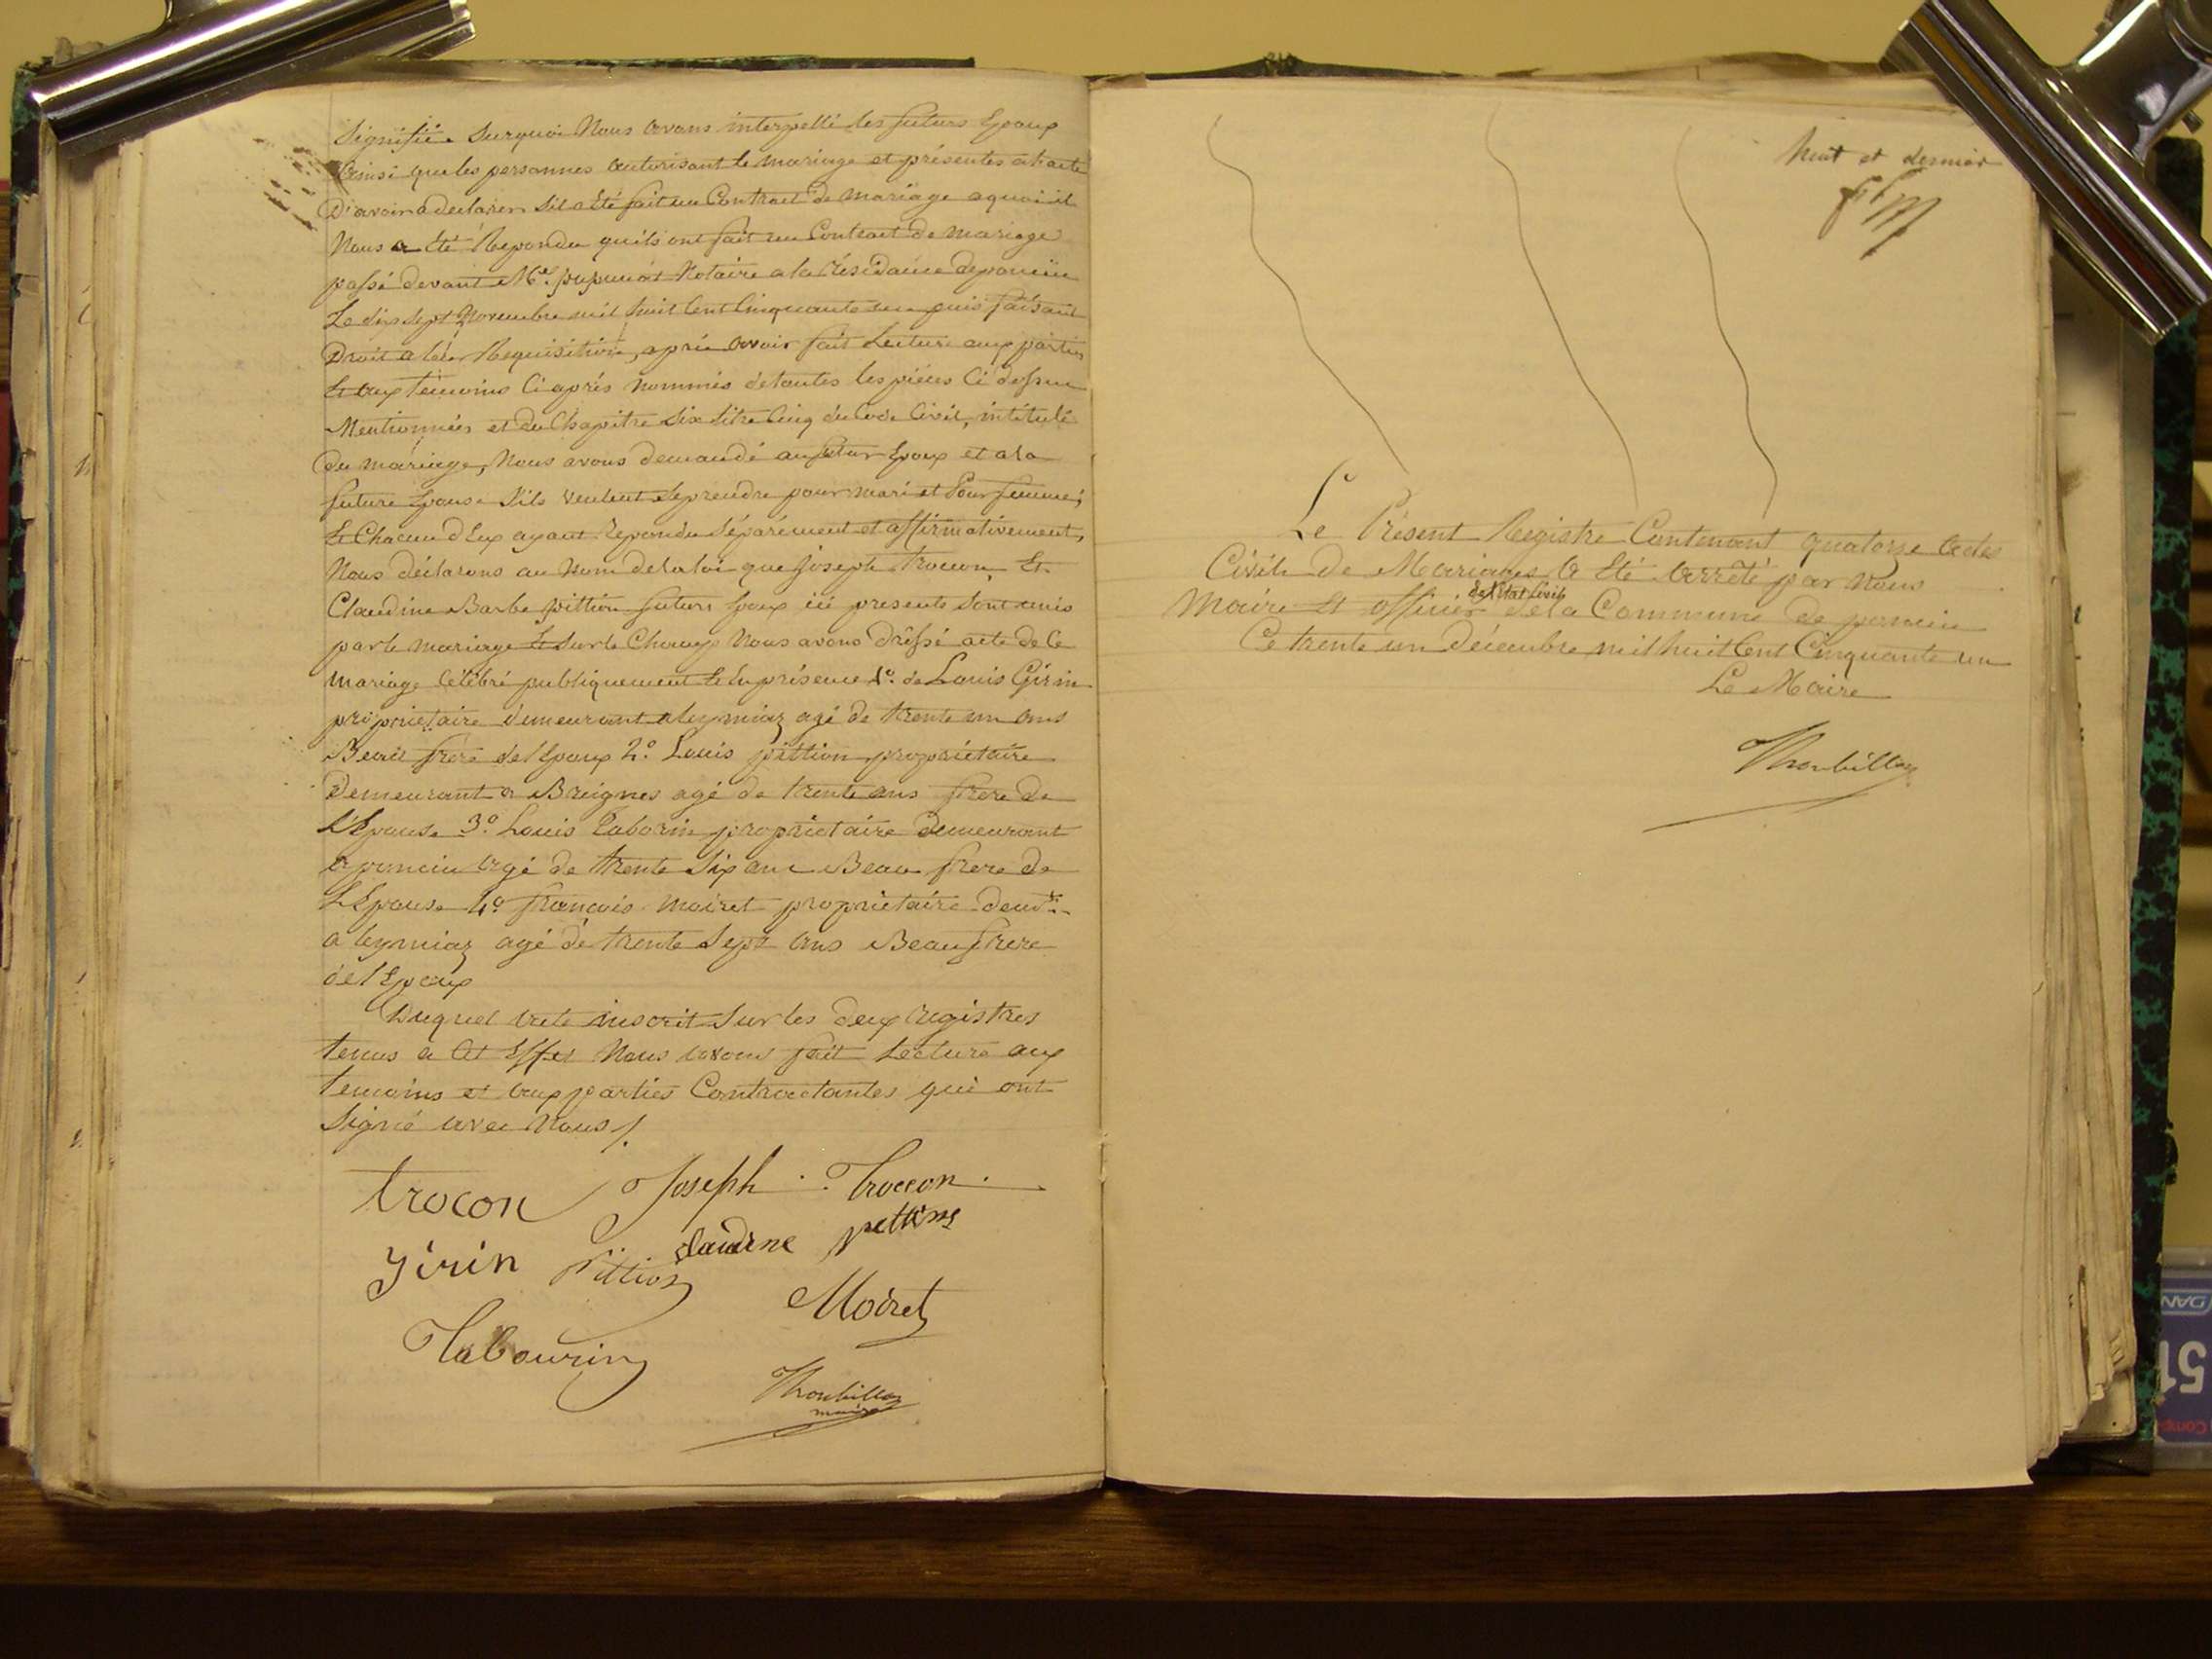 Signifié. Surquoi Nous avons interpellé les futurs Epoux
Ainsi que les personnes autorisant le mariage et présentes a l'acte
D'avoir a declarer s'il a été fait un Contrat de mariage a quoi il
Nous a été Repondu qu'ils ont fait un Contrat de mariage
passé devant Me. Notaire a la résidance de poncin
Le dix sept Novembre mil huit Cent Cinquante un puis faisant
Droit a leur Requisition, aprés avoir fait Lecture aux parties
Et aux Temoins Ci aprés nommés de toutes les piéces Ci dessus
Mentionnées et du Chapitre Six titre Cinq du Code Civil, intitulé
du mariage, Nous avons demandé au futur Epoux et a la
future Epouse S'ils veulent se prendre pour mari et Pour femme;
Et Chacun d'Eux ayant repondu Séparément et affirmativement,
Nous déclarons au Nom de la loi que Joseph Troccon, Et
Claudine Barbe pittion futurs Epoux ici presents Sont unis
par le mariage Et Sur le Champ Nous avons dréssé acte de Ce
mariage Célébré publiquement Et En présence 1º. de Louis Girin
propriétaire demeurant a leymiaz agé de trente un ans
Beau frére de l'Epoux 2º. Louis pittion propriétaire
Demeurant a Breignes agé de trente ans frere de
l'Epouse 3º. Louis Taborin propriétaire Demeurant
a poncin agé de trente Six ans Beau frere de
L'Epouse 4º. françois moiret propriétaire demt.
a leymiaz agé de trente Sept ans Beau frere
de l'Epoux
Duquel acte inscrit Sur les deux registres
tenus a Cet Effet Nous avons fait Lecture aux
temoins et aux parties Contractantes qui ont
Signé avec Nous /.
trocon Joseph Troccon.
girin pittion claudine pettion
Moiret
Tabourin
Thoubillon
maire
huit et dernier
Le Présent Registre Contenant quatorze actes
Civils de Mariages a Eté Arrêté par Nous
de l'Etat Civil
Maire Et officier de la Commune de poncin
Ce trente un Décembre mil huit Cent Cinquante un
Le Maire
Thoubillon
DAN
51